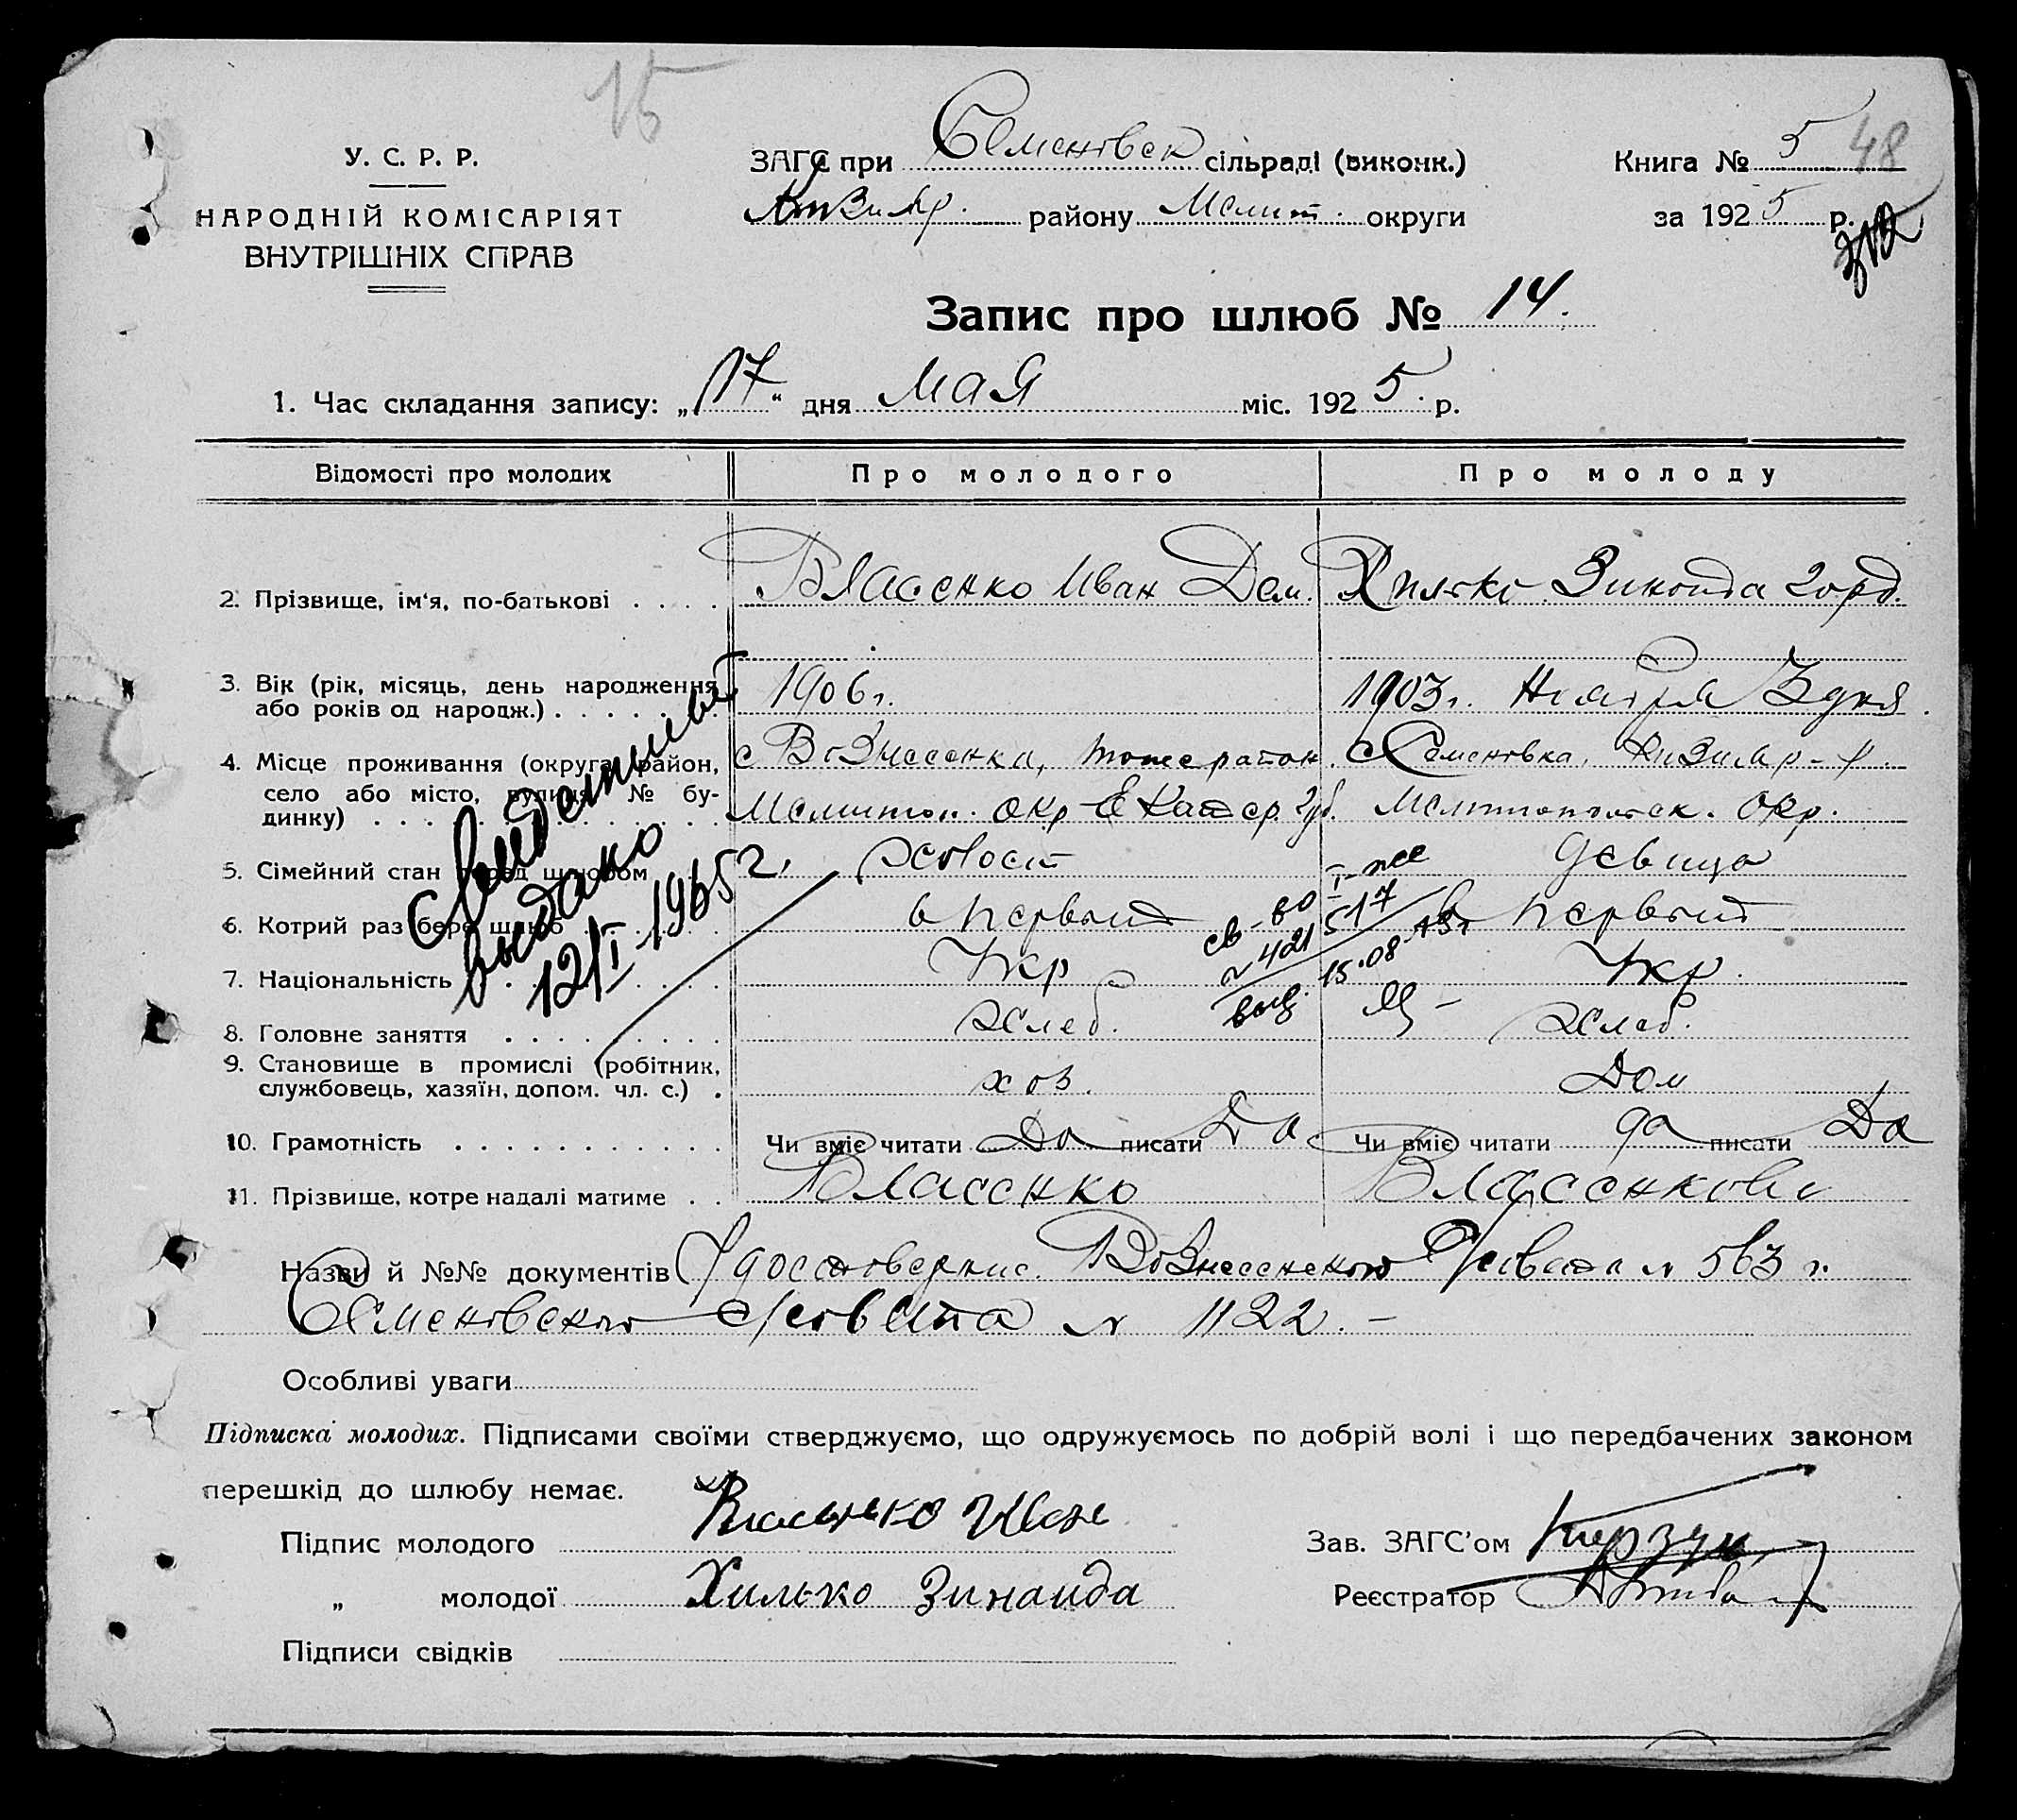 15
У. С. Р. Р.
НАРОДНІЙ КОМІСАРІЯТ
ВНУТРІШНІХ СПРАВ
ЗАГС при Семеновск сільраді (виконк.)
району Мелит. округи
Книга № 5 48
за 1925 р.
Запис про шлюб № 14.
1. Час складання запису: „17“ дня мая міс. 1925 р.
Відомості про молодих Про молодого Про молоду
2. Прізвище, ім'я, по-батькові . . . . Власенко Иван Дем. Хилько Зинаида Горд.
3. Вік (рік, місяць, день народження
або років од народж.) . . . . . . . 1906 г. 1903 г. Ноября 3 дня.
4. Місце проживання (округа, район,
село або місто, вулиця, № бу-
динку) . . . . . . . . . . . .
с Вознесенка, того же район.
Мелитоп. окр Екатер. губ.
с Семеновка, Кизияр - р.
Мелитопольск. окр.
5. Сімейний стан перед шлюбом холост девица
6. Котрий раз бере шлюб в первый в первый
7. Національність Укр Укр.
8. Головне заняття . . . . . . . . хлеб. хлеб.
9. Становище в промислі (робітник,
службовець, хазяїн, допом. чл. с.) . хоз. Дом
10. Грамотність . . . . . . . . . . Чи вміє читати Да писати Да Чи вміє читати да писати Да
11. Прізвище, котре надалі матиме . . Власенко Власенкова
Свидетельство
выдано
12/I-1965 г.
св-во I-же
№ 421517
выд. 15.08
Назви й №№ документів Удостоверние. Вознесенского С/совета № 563 и
Семеновского с/совета № 1122. –
Особливі уваги
Підписка молодих. Підписами своїми стверджуємо, що одружуємось по добрій волі і що передбачених законом
перешкід до шлюбу немає.
Підпис молодого Власенко Иван
„ молодої Хилько Зинаида
Підписи свідків
Зав. ЗАГС'ом
Реєстратор